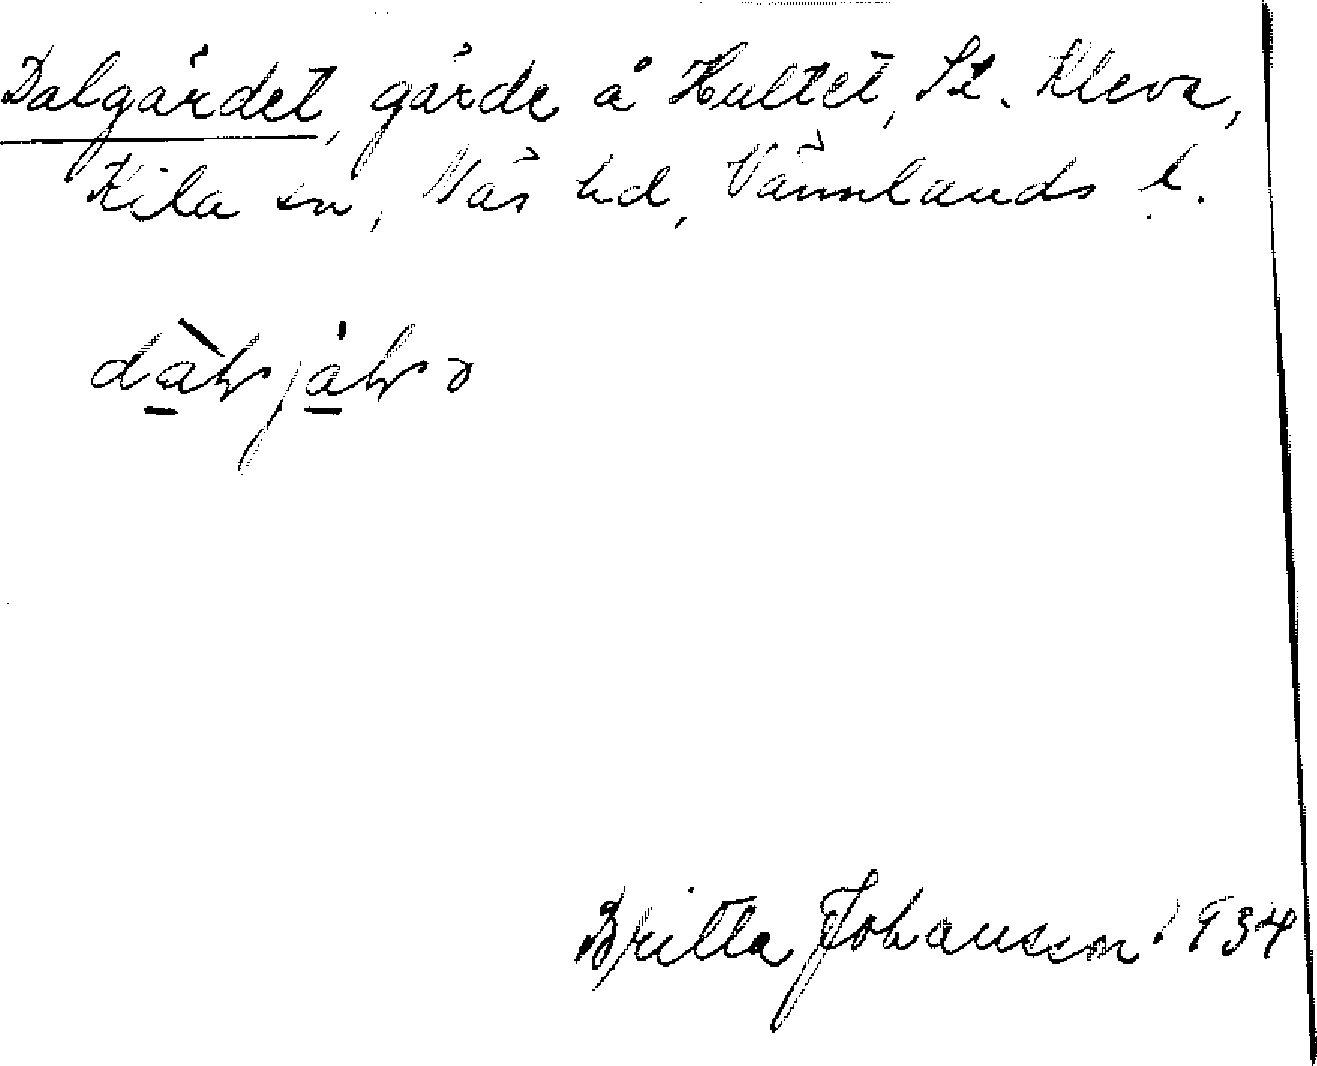 Dalgärdet, gärde å Hultet, St. Kleva,
Kila sn, Näs hd, Värmlands l.
Britta Johansson 1934